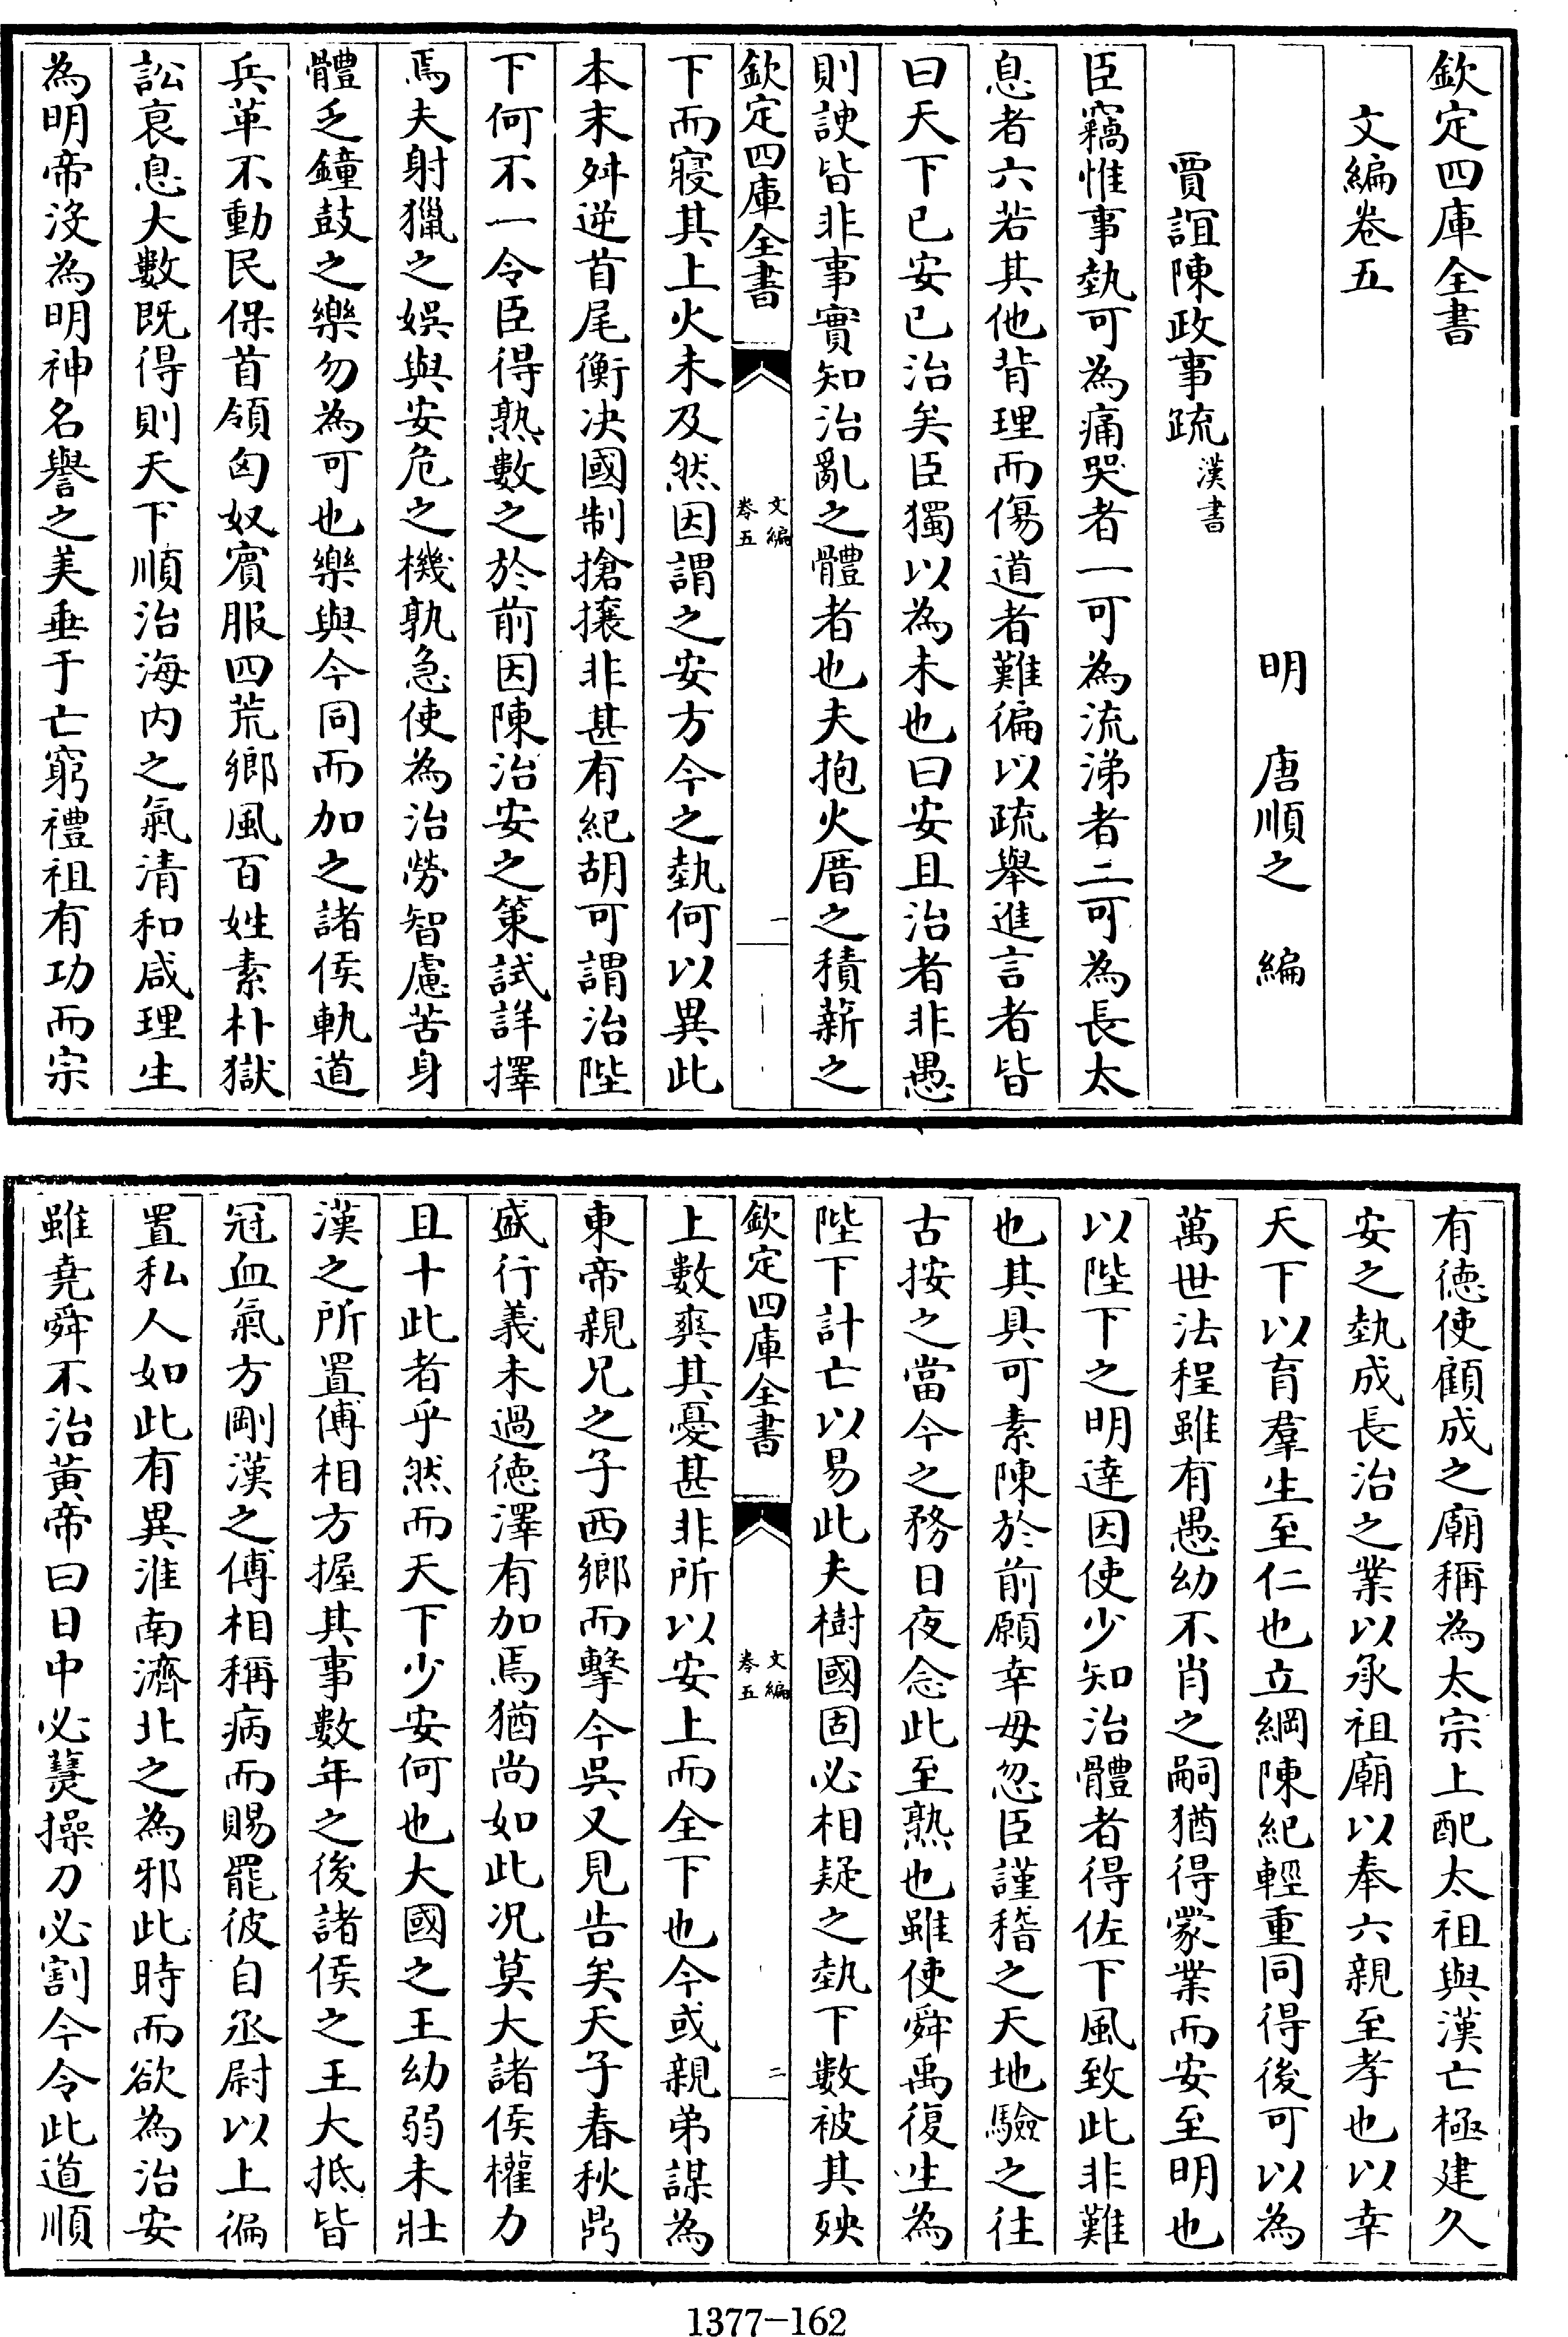 欽定四庫全書
文編卷五
明　唐順之　編
賈誼陳政事疏漢書
臣竊惟事埶可為痛哭者一可為流涕者二可為長太
息者六若其他背理而傷道者難徧以疏舉進言者皆
曰天下已安已治矣臣獨以為未也曰安且治者非愚
則諛皆非事實知治亂之體者也夫抱火厝之積薪之
欽定四庫全書
文編
卷五
一
下而寢其上火未及然因謂之安方今之埶何以異此
本末舛逆首尾衡决國制搶攘非甚有紀胡可謂治陛
下何不一令臣得熟數之於前因陳治安之策試詳擇
焉夫射獵之娛與安危之機孰急使為治勞智慮苦身
體乏鐘鼓之樂勿為可也樂與今同而加之諸侯軌道
兵革不動民保首領匈奴賓服四荒鄉風百姓素朴獄
訟衰息大數既得則天下順治海内之氣清和咸理生
為明帝沒為明神名譽之美垂于亡窮禮祖有功而宗
有德使顧成之廟稱為太宗上配太祖與漢亡極建久
安之埶成長治之業以承祖廟以奉六親至孝也以幸
天下以育羣生至仁也立綱陳紀輕重同得後可以為
萬世法程雖有愚幼不肖之嗣猶得蒙業而安至明也
以陛下之明達因使少知治體者得佐下風致此非難
也其具可素陳於前願幸毋忽臣謹稽之天地驗之往
古按之當今之務日夜念此至熟也雖使舜禹復生為
陛下計亡以易此夫樹國固必相疑之埶下數被其殃
欽定四庫全書
文編
卷五
二
上數爽其憂甚非所以安上而全下也今或親弟謀為
東帝親兄之子西鄉而擊今吳又見告矣天子春秋鼎
盛行義未過德澤有加焉猶尚如此况莫大諸侯權力
且十此者乎然而天下少安何也大國之王幼弱未壯
漢之所置傅相方握其事數年之後諸侯之王大抵皆
冠血氣方剛漢之傅相稱病而賜罷彼自丞尉以上徧
置私人如此有異淮南濟北之為邪此時而欲為治安
雖堯舜不治黄帝曰日中必熭操刀必割今令此道順
1377-162